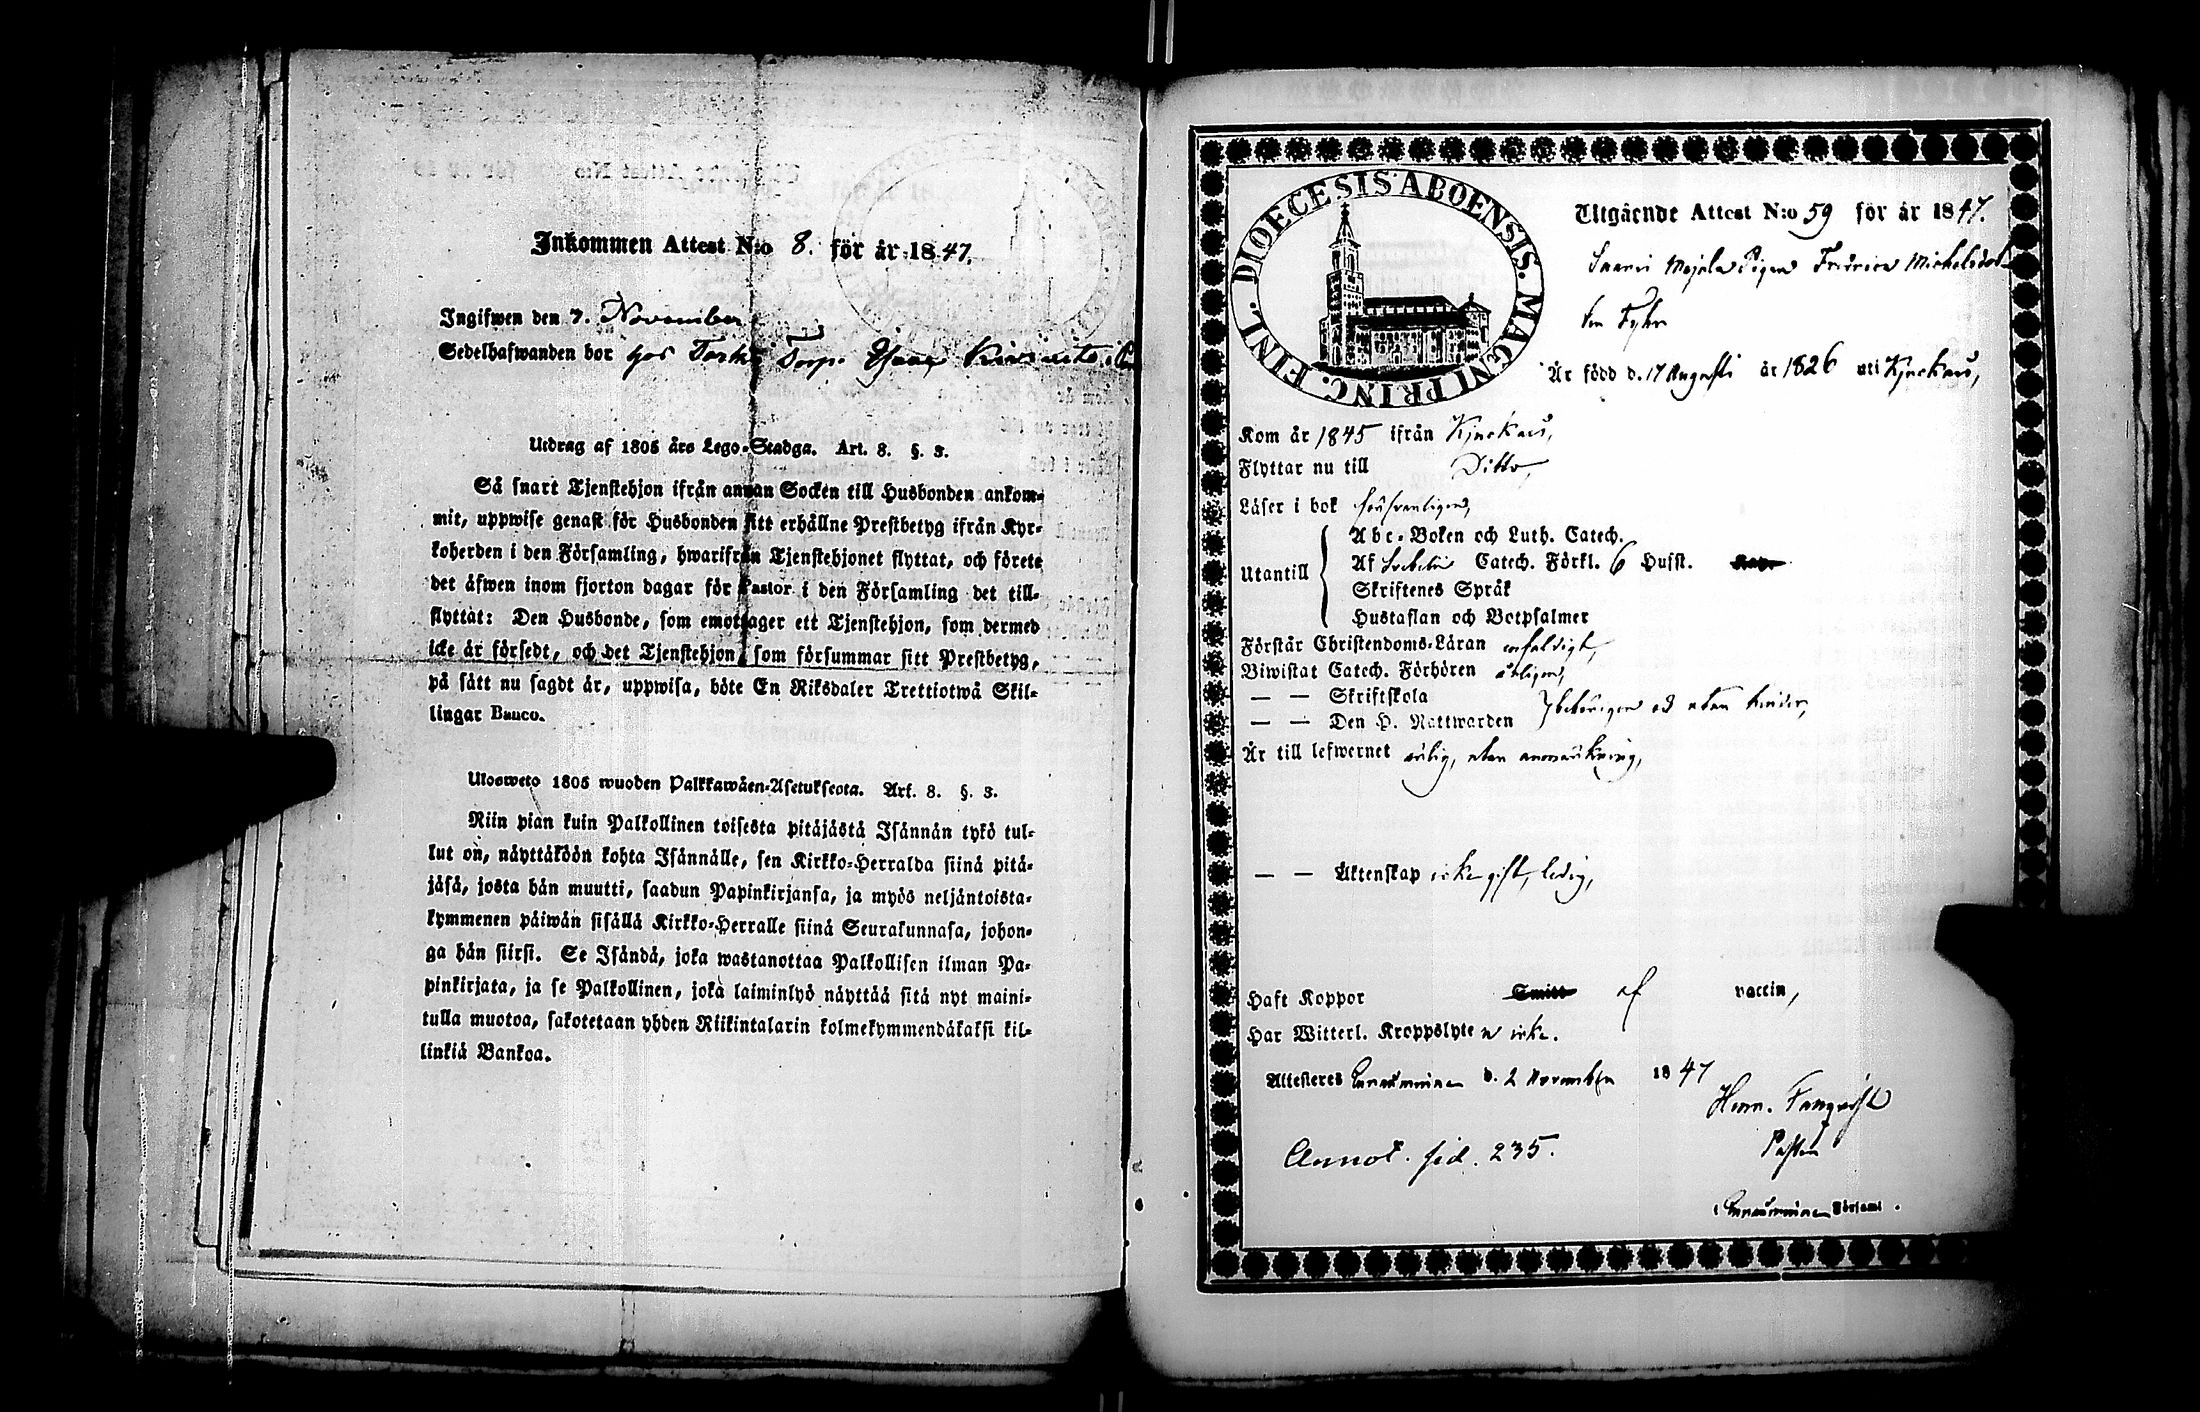 Inkommen Attest N:o 8. för år 1847.
Ingifwen den 7. November
Sedelhafwanden bor hos Torp. Isaac
Utdrag af 1805 års Lego-Stadga. Art. 8. §. 3.
Så snart Tjenstehjon ifrån annan Socken till Husbonden ankom-
mit, uppwise genast för Husbonden sitt erhållne Prestbetyg ifrån Kyr-
koherden i den Församling, hwarifrån Tjenstehjonet flyttat, och förete
det äfwen inom fjorton dagar för Pastor i den Församling det till-
flyttat: Den Husbonde, som emottager ett Tjenstehjon, som dermed
icke är försedt, och det Tjenstehjon som försummar sitt Prestbetyg,
på sätt nu sagdt är, uppwisa, böte En Riksdaler Trettiotwå Skil-
lingar Banco.
Ulosweto 1805 wuoden Palkkawäen-Asetuksesta. Art. 8. §. 3.
Niin pian kuin Palkollinen toisesta pitäjästä Isännän tykö tul-
lut on, näyttäköön kohta Isännälle, sen Kirkko-Herralda siinä pitä-
jäsä, josta hän muutti, saadun Papinkirjansa, ja myös neljäntoista-
kymmenen päiwän sisällä Kirkko-Herralle siinä Seurakunnasa, johon-
ga hän siirsi. Se Isändä, joka wastanottaa Palkollisen ilman Pa-
pinkirjata, ja se Palkollinen, joka laiminlyö näyttää sitä nyt maini-
tulla muotoa, sakotetaan yhden Riikintalarin kolmekymmendäkaksi kil-
linkiä Bankoa.
DIOECESIS ABOENSIS. MAGNI PRINC. FINL.
Utgående Attest N:o 59 för år 1847.
Pigan Fredrica Michelsdot-
ter
Är född d. 17 Augusti år 1826 uti Kjuckais,
Kom år 1845 ifrån Kjuckais,
Flyttar nu till Ditto,
Läser i bok försvarligen,
Utantill
Abc-Boken och Luth. Catech.
Af Svebelii Catech. Förkl. 6 Hufst.
Skriftenes Språk
Hustaflan och Botpsalmer
Förstår Christendoms-Läran enfaldigt,
Biwistat Catech. Förhören årligen,
— — Skriftskola
— — Den H. Nattwarden behörigen och utan hinder,
Är till lefwernet ärlig, utan anmärkning,
— — Äktenskap icke gift, ledig,
Haft Koppor Smitt af vaccin,
Har Witterl. Kroppslyte n icke.
Attesteras d. 2 November 1847
Herm. Tanqvist
Pastor
Annot. sid. 235.
i Församl.